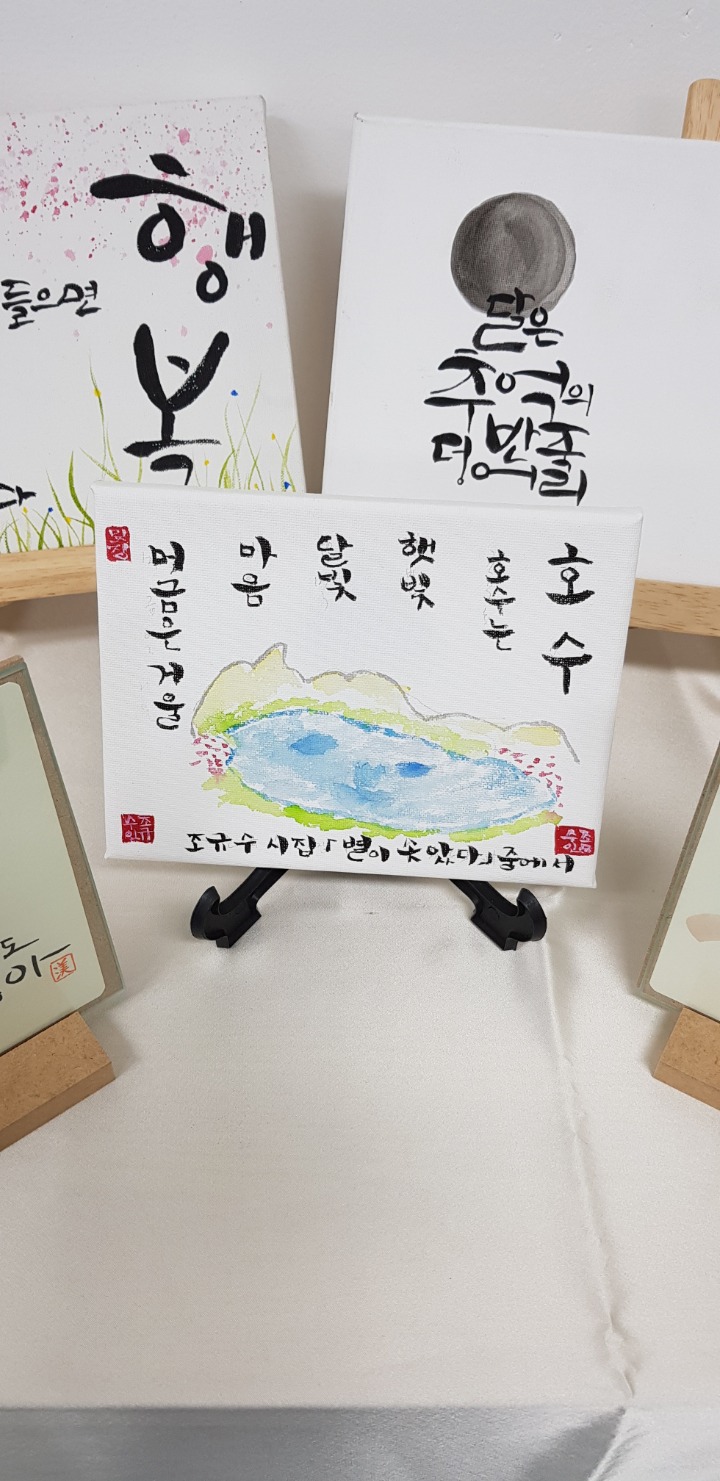 행복
들으면
다
달은
추억의
호수
호수는
햇빛
달빛
마음
머금은 거울
조규수 시집 「별이 솟았다」 중에서
도
아